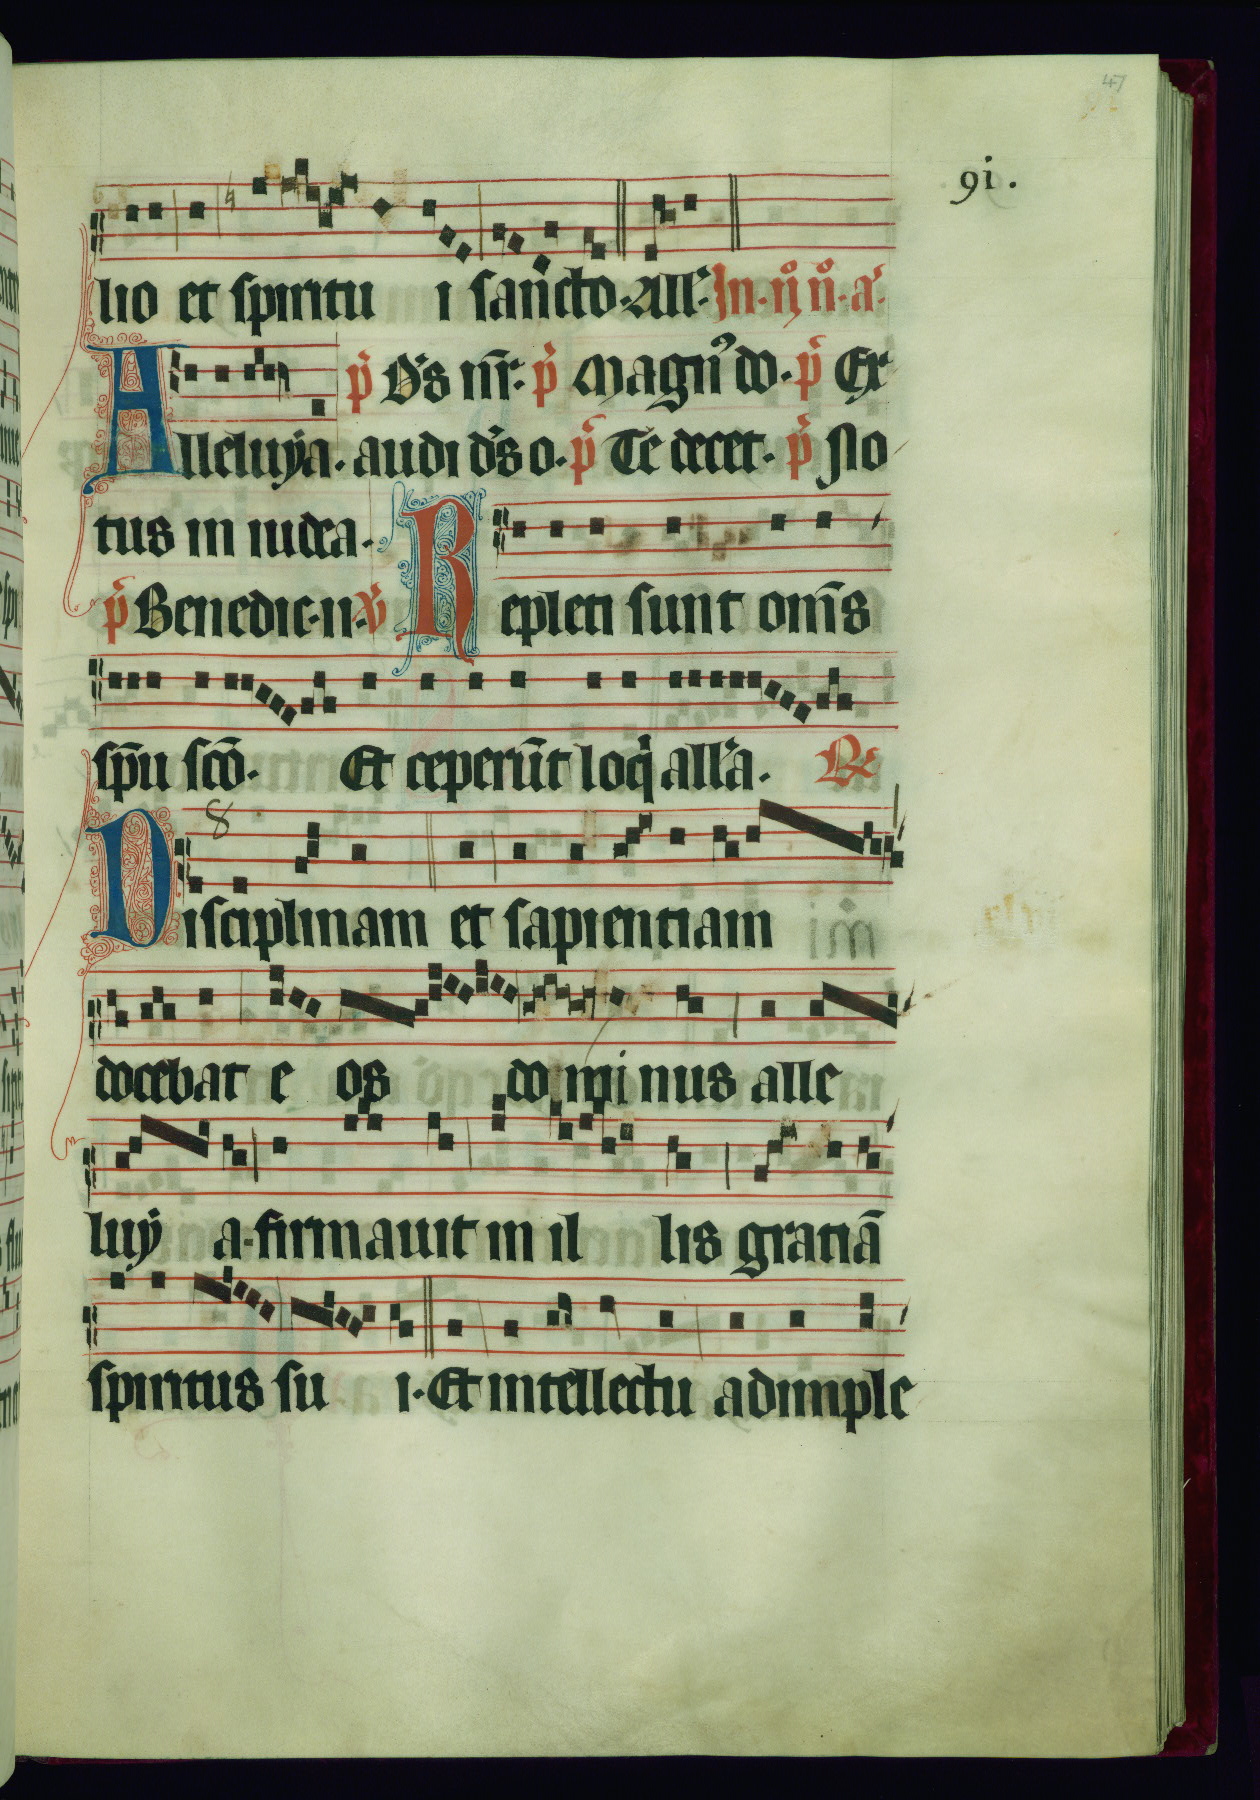 47
91.
lio et spiritu i sancto. All'. In. ij. n. a.
p̃ Dñs nr̄. p̃ Magn' do. p̃ Ex
Alleluya. audi dñs o. p̃ Te decet. p̃ No
tus in iudea.
p̃ Benedic. ii. v̄ Repleti sunt om̄s
sp̄u sc̄o. Et ceperūt loq̃ all'a. R̃
8
Disciplinam et sapientiam
docebat e os do mi nus alle
luÿ a. firmauit in il lis gratiā
spiritus su i. Et intellectu adimple